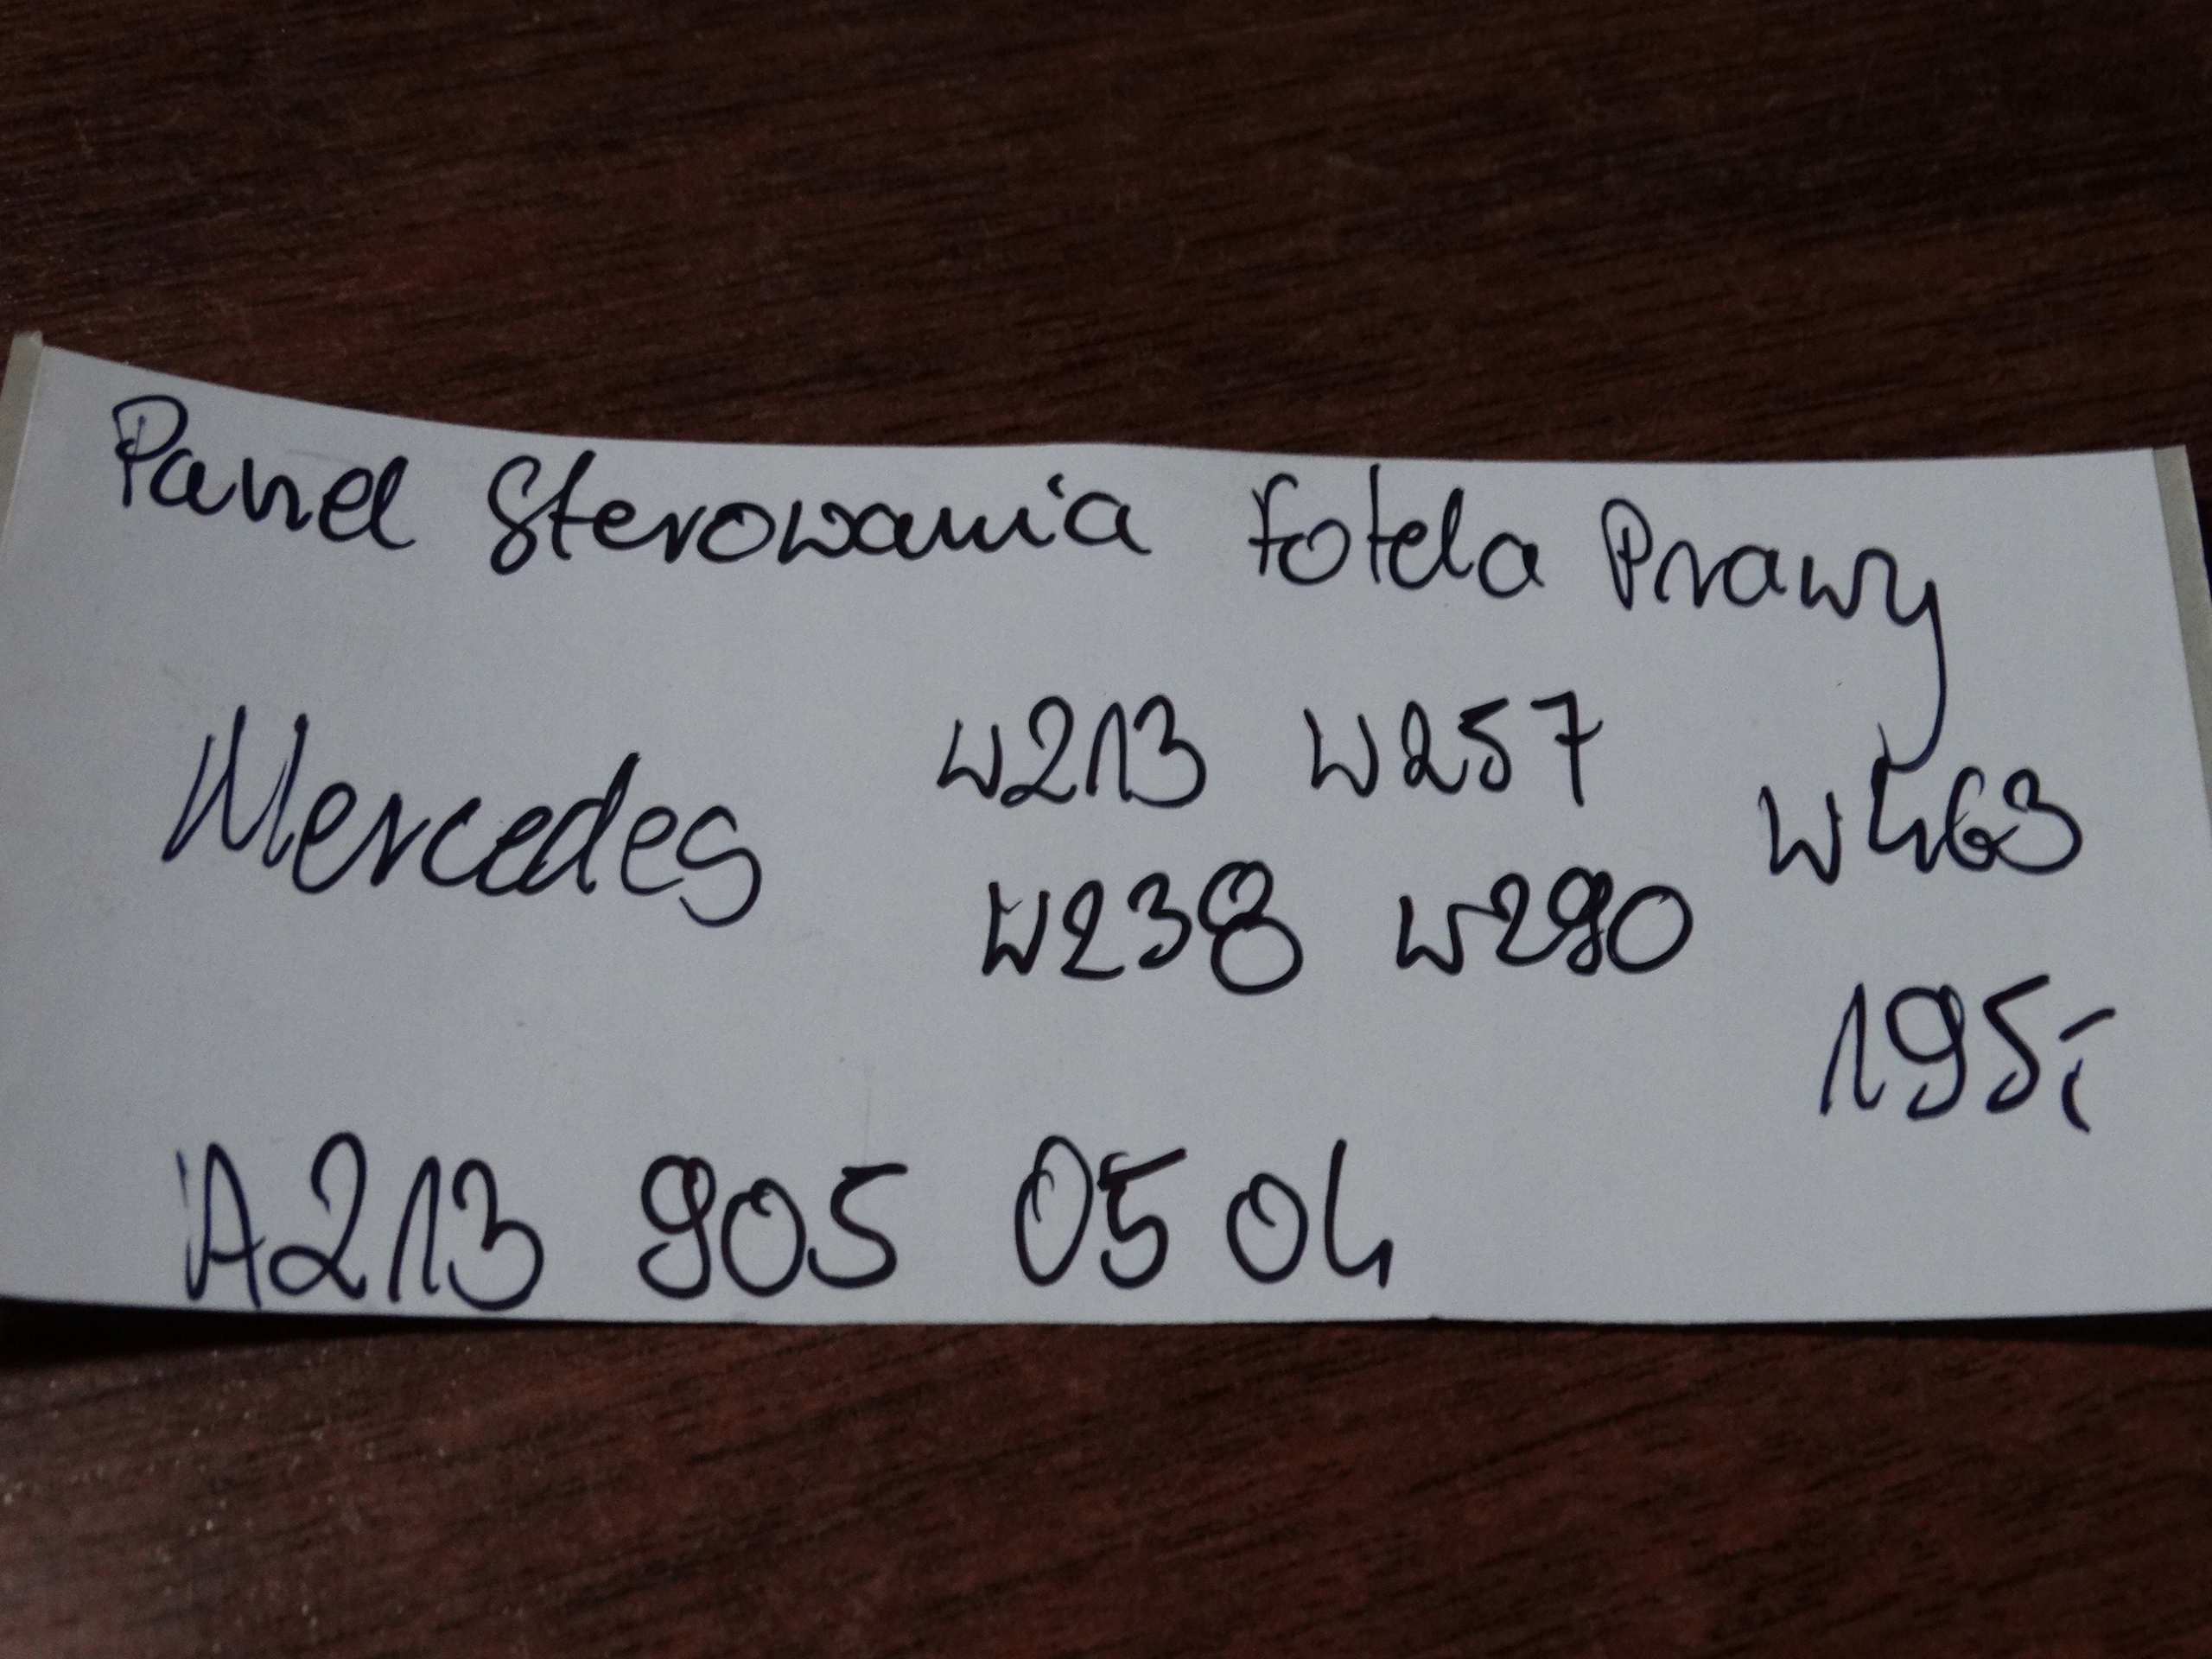 Panel Sterowania Fotela Prawy
Mercedes W213 W257 W463
W238 W290
195,-
A213 905 05 04